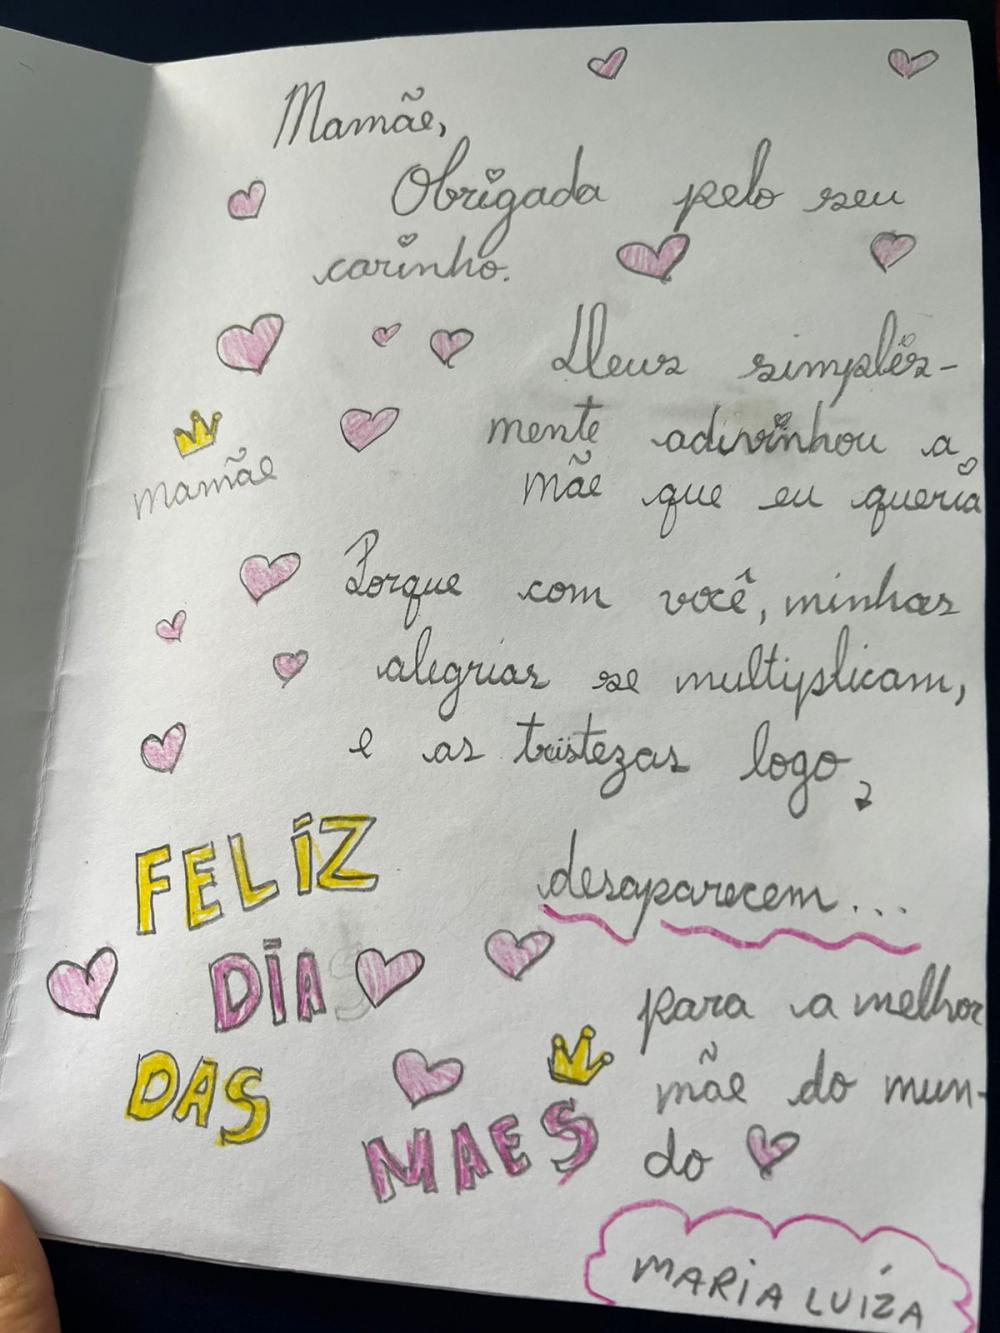 Mamãe,
Obrigada pelo seu
carinho.
Deus simples-
mente adivinhou a
mãe que eu queria
mamãe
Porque com você, minhas
alegrias se multiplicam,
e as tristezas logo
desaparecem...
FELIZ
DIA
DAS
MAES
para a melhor
mãe do mun-
do
MARIA LUIZA